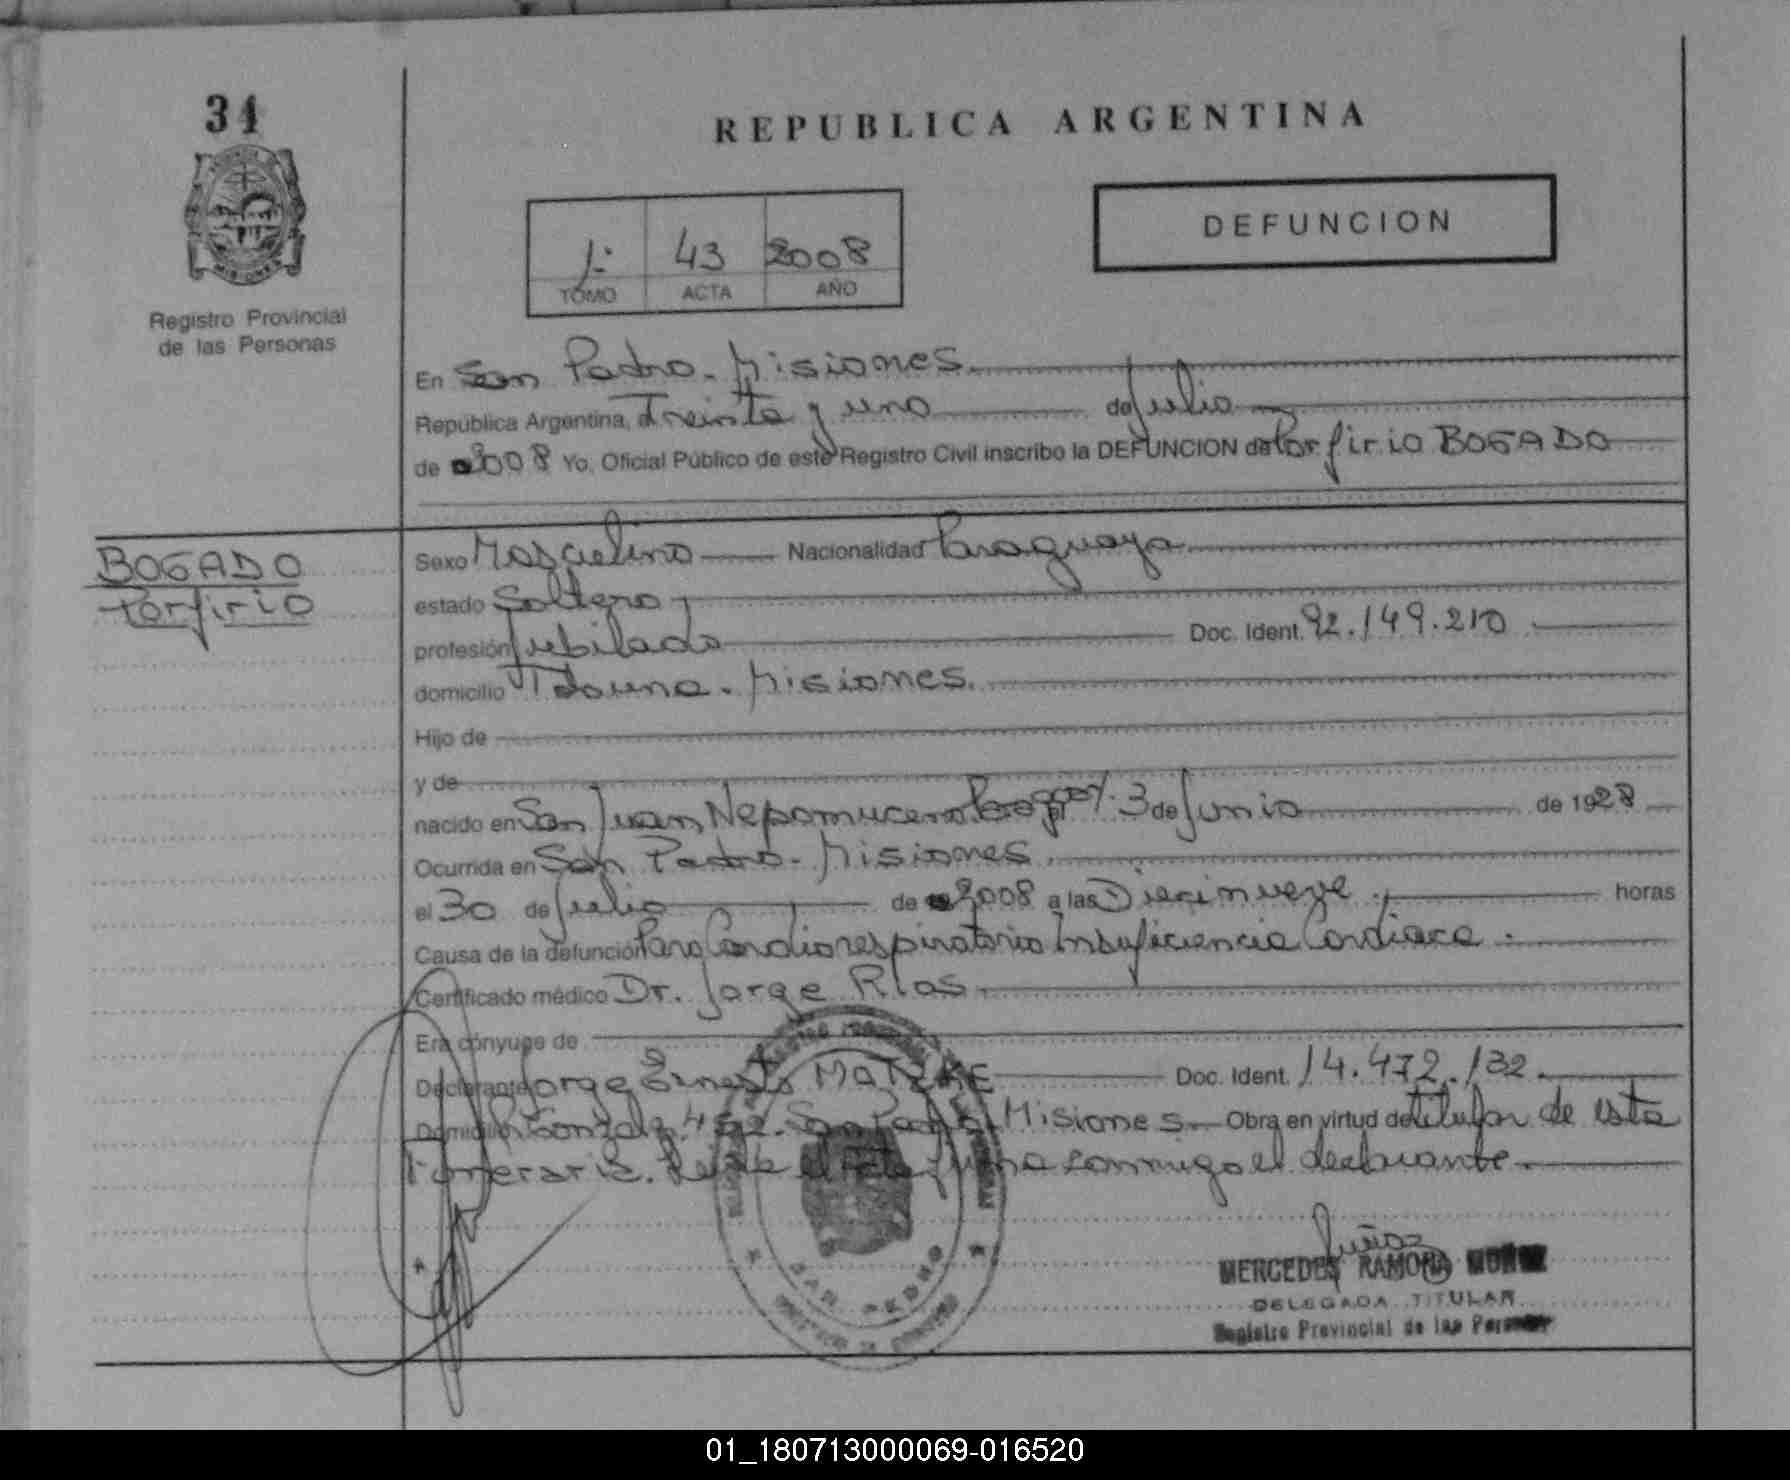 34
REPUBLICA ARGENTINA
DEFUNCION
1: 43 2008
TOMO ACTA AÑO
MISIONES
Registro Provincial
de las Personas
En San Pedro. Misiones.
República Argentina, Treinta y uno de Julio
de 2008 Yo, Oficial Público de este Registro Civil inscribo la DEFUNCION de Porfirio BOGADO
BOGADO
Porfirio
Sexo Masculino Nacionalidad Paraguaya
estado Soltero
profesión Jubilado Doc. Ident. 92.149.210
domicilio Misiones.
Hijo de
y de
nacido en San Juan Nepomuceno 3 de Junio de 1928
Ocurrida en San Pedro. Misiones.
el 30 de Julio de 2008 a las Diecinueve horas
Causa de la defunción Paro Cardiorespiratorio Insuficiencia Cardiaca.
Certificado médico Dr. Jorge Rios.
Era cónyuge de
Declarante Jorge Ernesto MATZKE Doc. Ident. 14.472.132.
Domicilio San Pedro Misiones Obra en virtud de titular de esta
Funeraria. firma conmigo el declarante.
SAN PEDRO
MERCEDES RAMONA MUÑOZ
DELEGADA TITULAR
Registro Provincial de las Personas
01_180713000069-016520